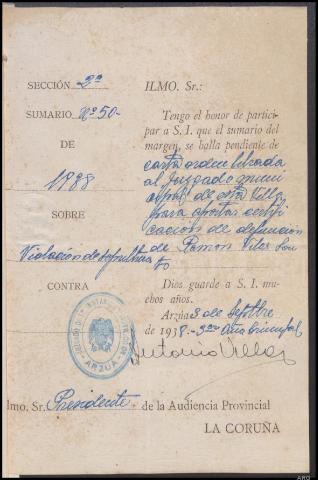 SECCIÓN 2ª
SUMARIO Nº 50-
DE
1938
SOBRE
Violación de sepultura
CONTRA
ILMO. Sr.:
Tengo el honor de partici-
par a S. I. que el sumario del
margen, se halla pendiente de
carta orden librada
al Juzgado muni
cipal de esta Villa
para aportar certifi
cación de defunción
de Ramon Vilas Sou
to
Dios guarde a S. I. mu-
chos años.
Arzúa 3 de Septbre
de 1938. 3er Año triunfal
Antonio
ARZUA
Ilmo. Sr. Presidente de la Audiencia Provincial
LA CORUÑA